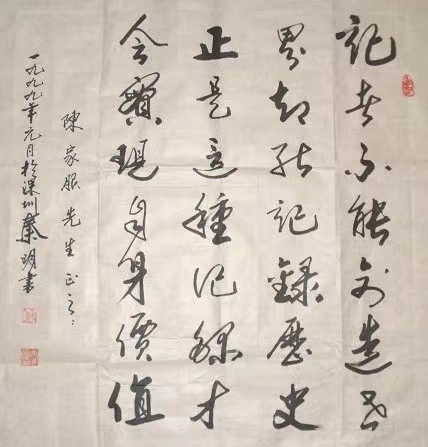 記者不能創造世
界却能記錄歷史
正是這種記錄才
会實現自身價值
陳家服先生正之
一九九九年元月於深圳秦明書